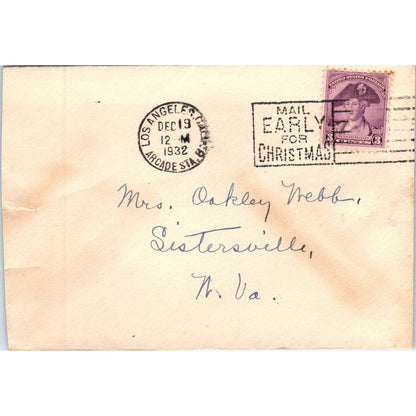 LOS ANGELES, CALIF.
DEC 19
12 M
1932
ARCADE STA.
MAIL
EARLY
FOR
CHRISTMAS
UNITED STATES POSTAGE
3 3
Mrs. Oakley Webb,
Sistersville,
W. Va.